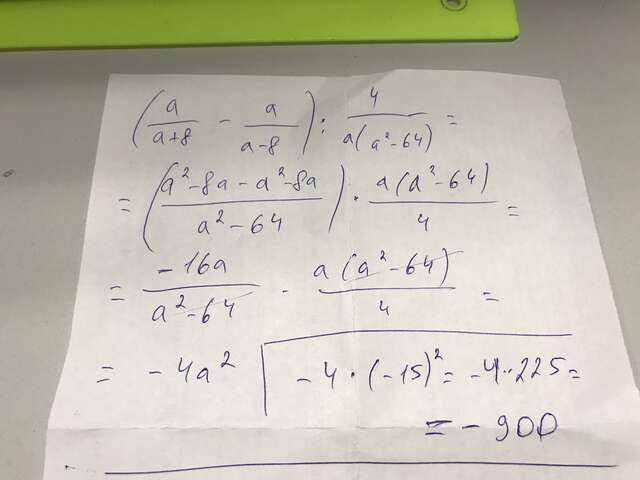 (a/(a+8) - a/(a-8)) : 4/(a(a²-64)) =
= ((a²-8a-a²-8a)/(a²-64)) · (a(a²-64))/4 =
= (-16a)/(a²-64) · (a(a²-64))/4 =
= -4a² | -4·(-15)² = -4·225 =
= -900